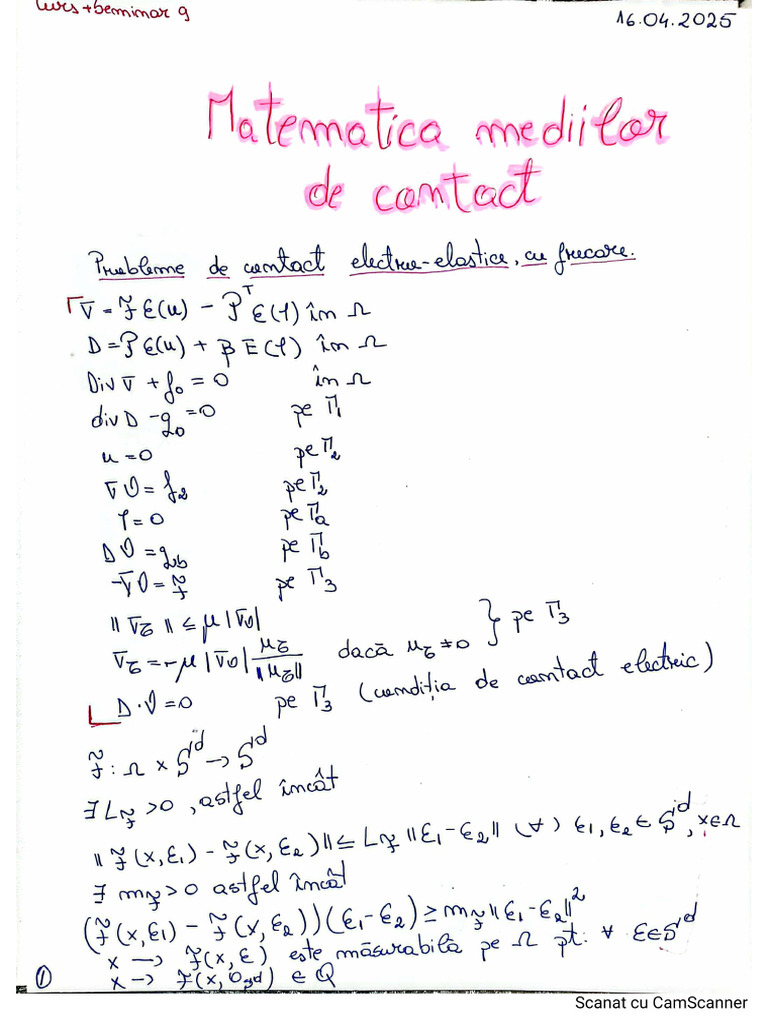 Curs + Seminar 9
16.04.2025
Matematica mediilor
de contact
Probleme de contact electro-elastice, cu frecare.
σ = F ε(u) − P^T E(φ) în Ω
D = P ε(u) + β E(φ) în Ω
Div σ + f₀ = 0 în Ω
div D − q₀ = 0 pe Γ₁
u = 0 pe Γ₂
σν = f₂ pe Γ₂
φ = 0 pe Γa
Dν = q_b pe Γb
−σν = F pe Γ₃
‖σ_τ‖ ≤ μ|σν|
σ_τ = −μ|σν| u_τ/‖u_τ‖ dacă u_τ ≠ 0 } pe Γ₃
D·ν = 0 pe Γ₃ (condiția de contact electric)
F : Ω × S^d → S^d
∃ L_F > 0, astfel încât
‖F(x, ε₁) − F(x, ε₂)‖ ≤ L_F ‖ε₁ − ε₂‖ (∀) ε₁, ε₂ ∈ S^d, x ∈ Ω
∃ m_F > 0 astfel încât
(F(x, ε₁) − F(x, ε₂))(ε₁ − ε₂) ≥ m_F ‖ε₁ − ε₂‖²
x → F(x, ε) este măsurabilă pe Ω pt. ∀ ε ∈ S^d
x → F(x, 0_S^d) ∈ Q
①
Scanat cu CamScanner